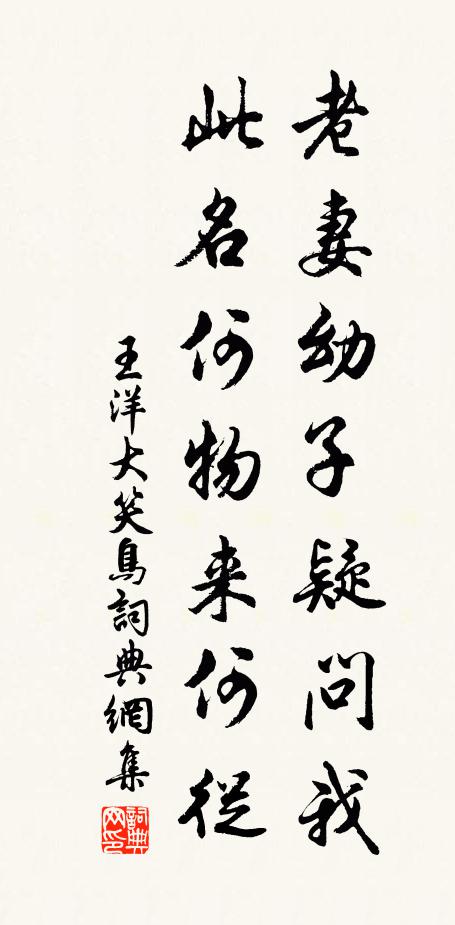 老妻幼子疑問我
此名何物来何從
王洋大笑鳥詞典網集
詞典網印